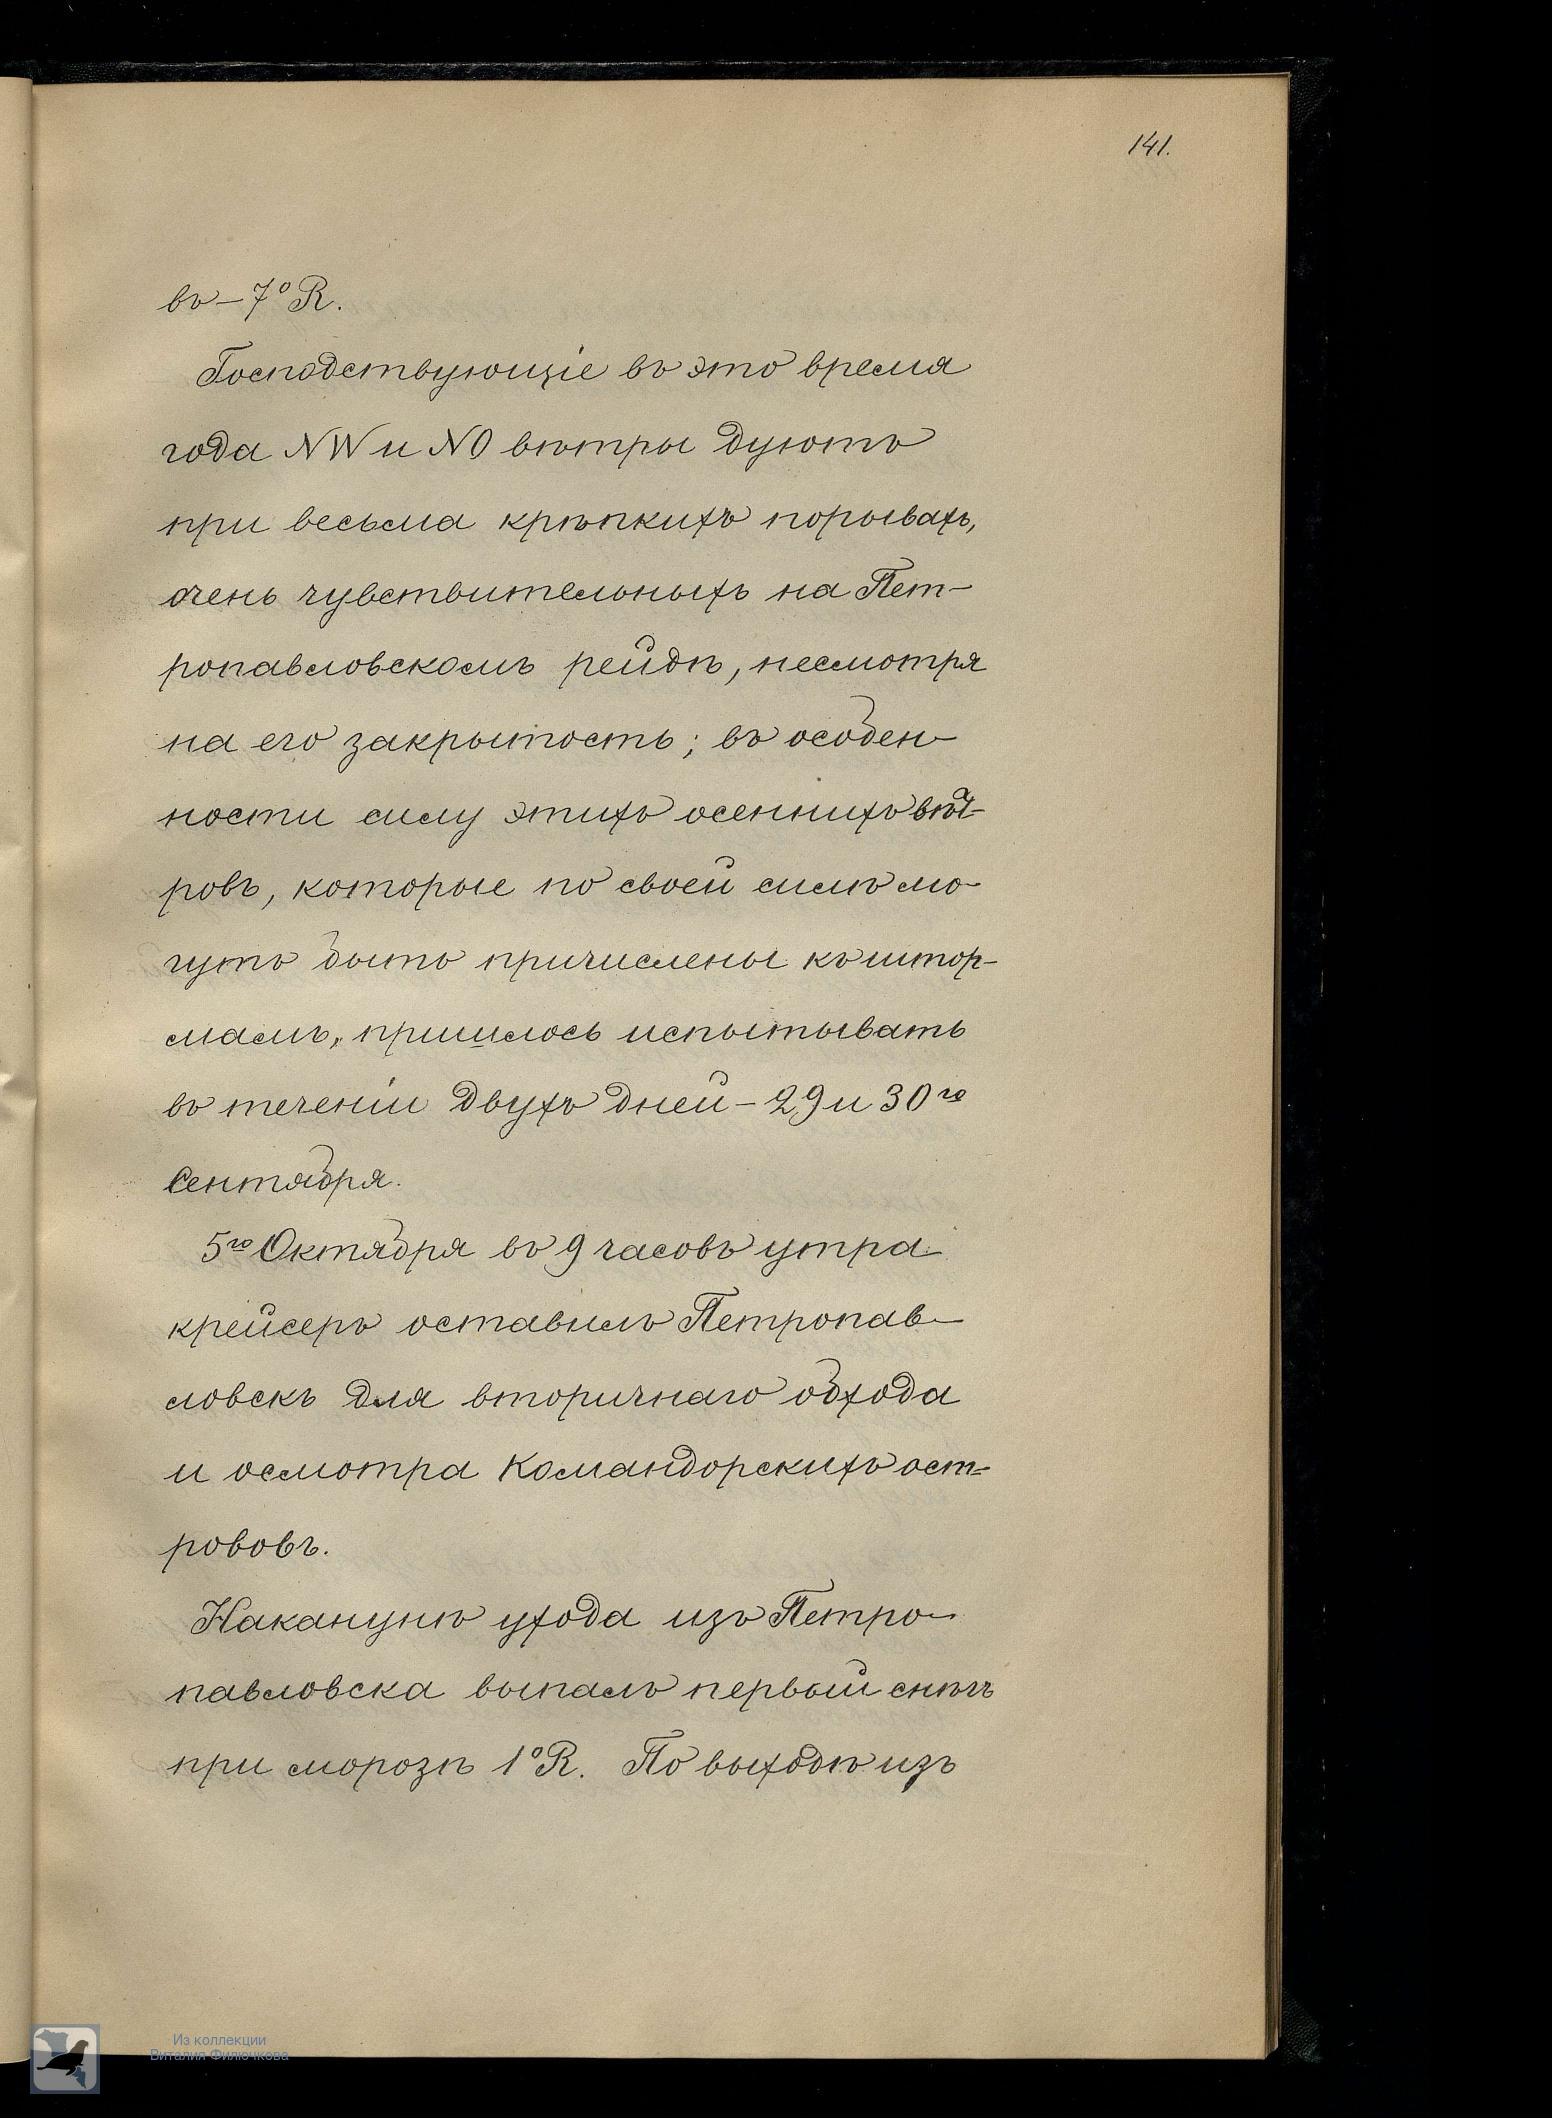 141.
въ – 7° R.
Господствующіе въ это время
года NW и NO вѣтры дуютъ
при весьма крѣпкихъ порывахъ,
очень чувствительныхъ на Пет-
ропавловскомъ рейдѣ, несмотря
на его закрытость; въ особен-
ности силу этихъ осеннихъ вѣт-
ровъ, которые по своей силѣ мо-
гутъ быть причислены къ штор-
мамъ, пришлось испытывать
въ теченіи двухъ дней – 29 и 30го
Сентября.
5го Октября въ 9 часовъ утра
крейсеръ оставилъ Петропав-
ловскъ для вторичнаго обхода
и осмотра Командорскихъ ост-
рововъ.
Наканунѣ ухода изъ Петро-
павловска выпалъ первый снѣгъ
при морозѣ 1° R. По выходѣ изъ
Из коллекции
Виталия Филючкова